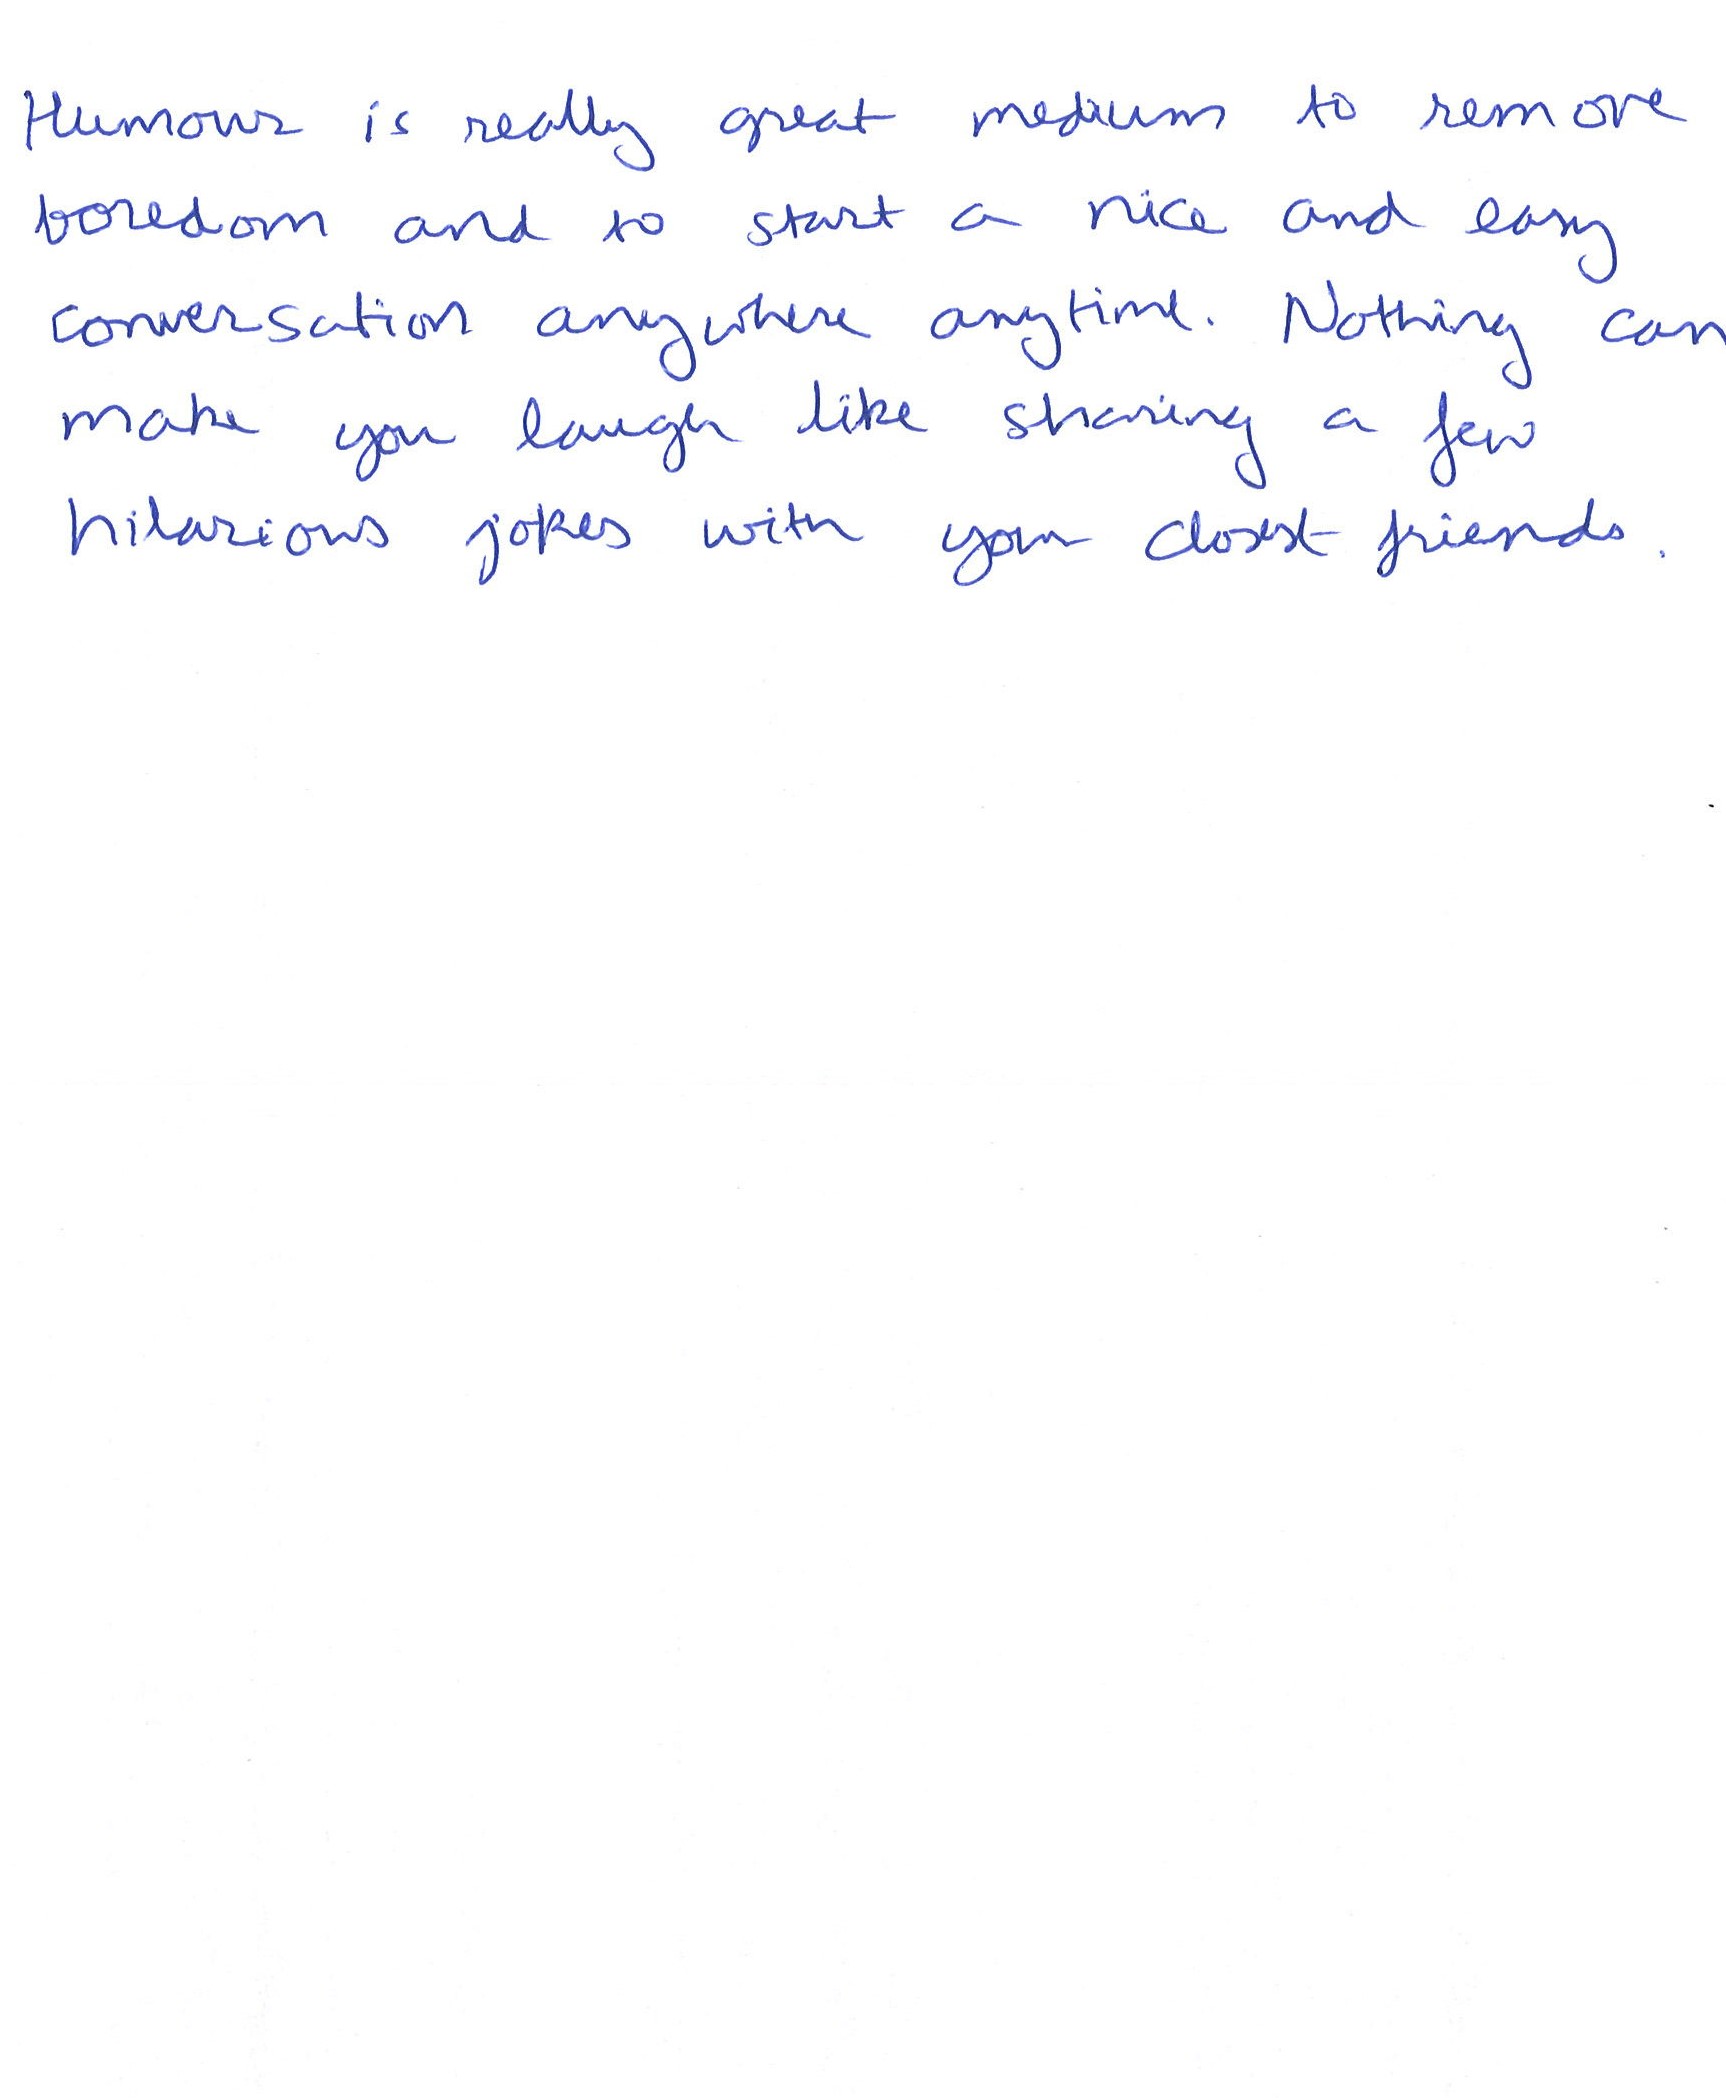 Humour is really great medium to remove
boredom and to start a nice and easy
conversation anywhere anytime. Nothing can
make you laugh like sharing a few
hilarious jokes with your closest friends.